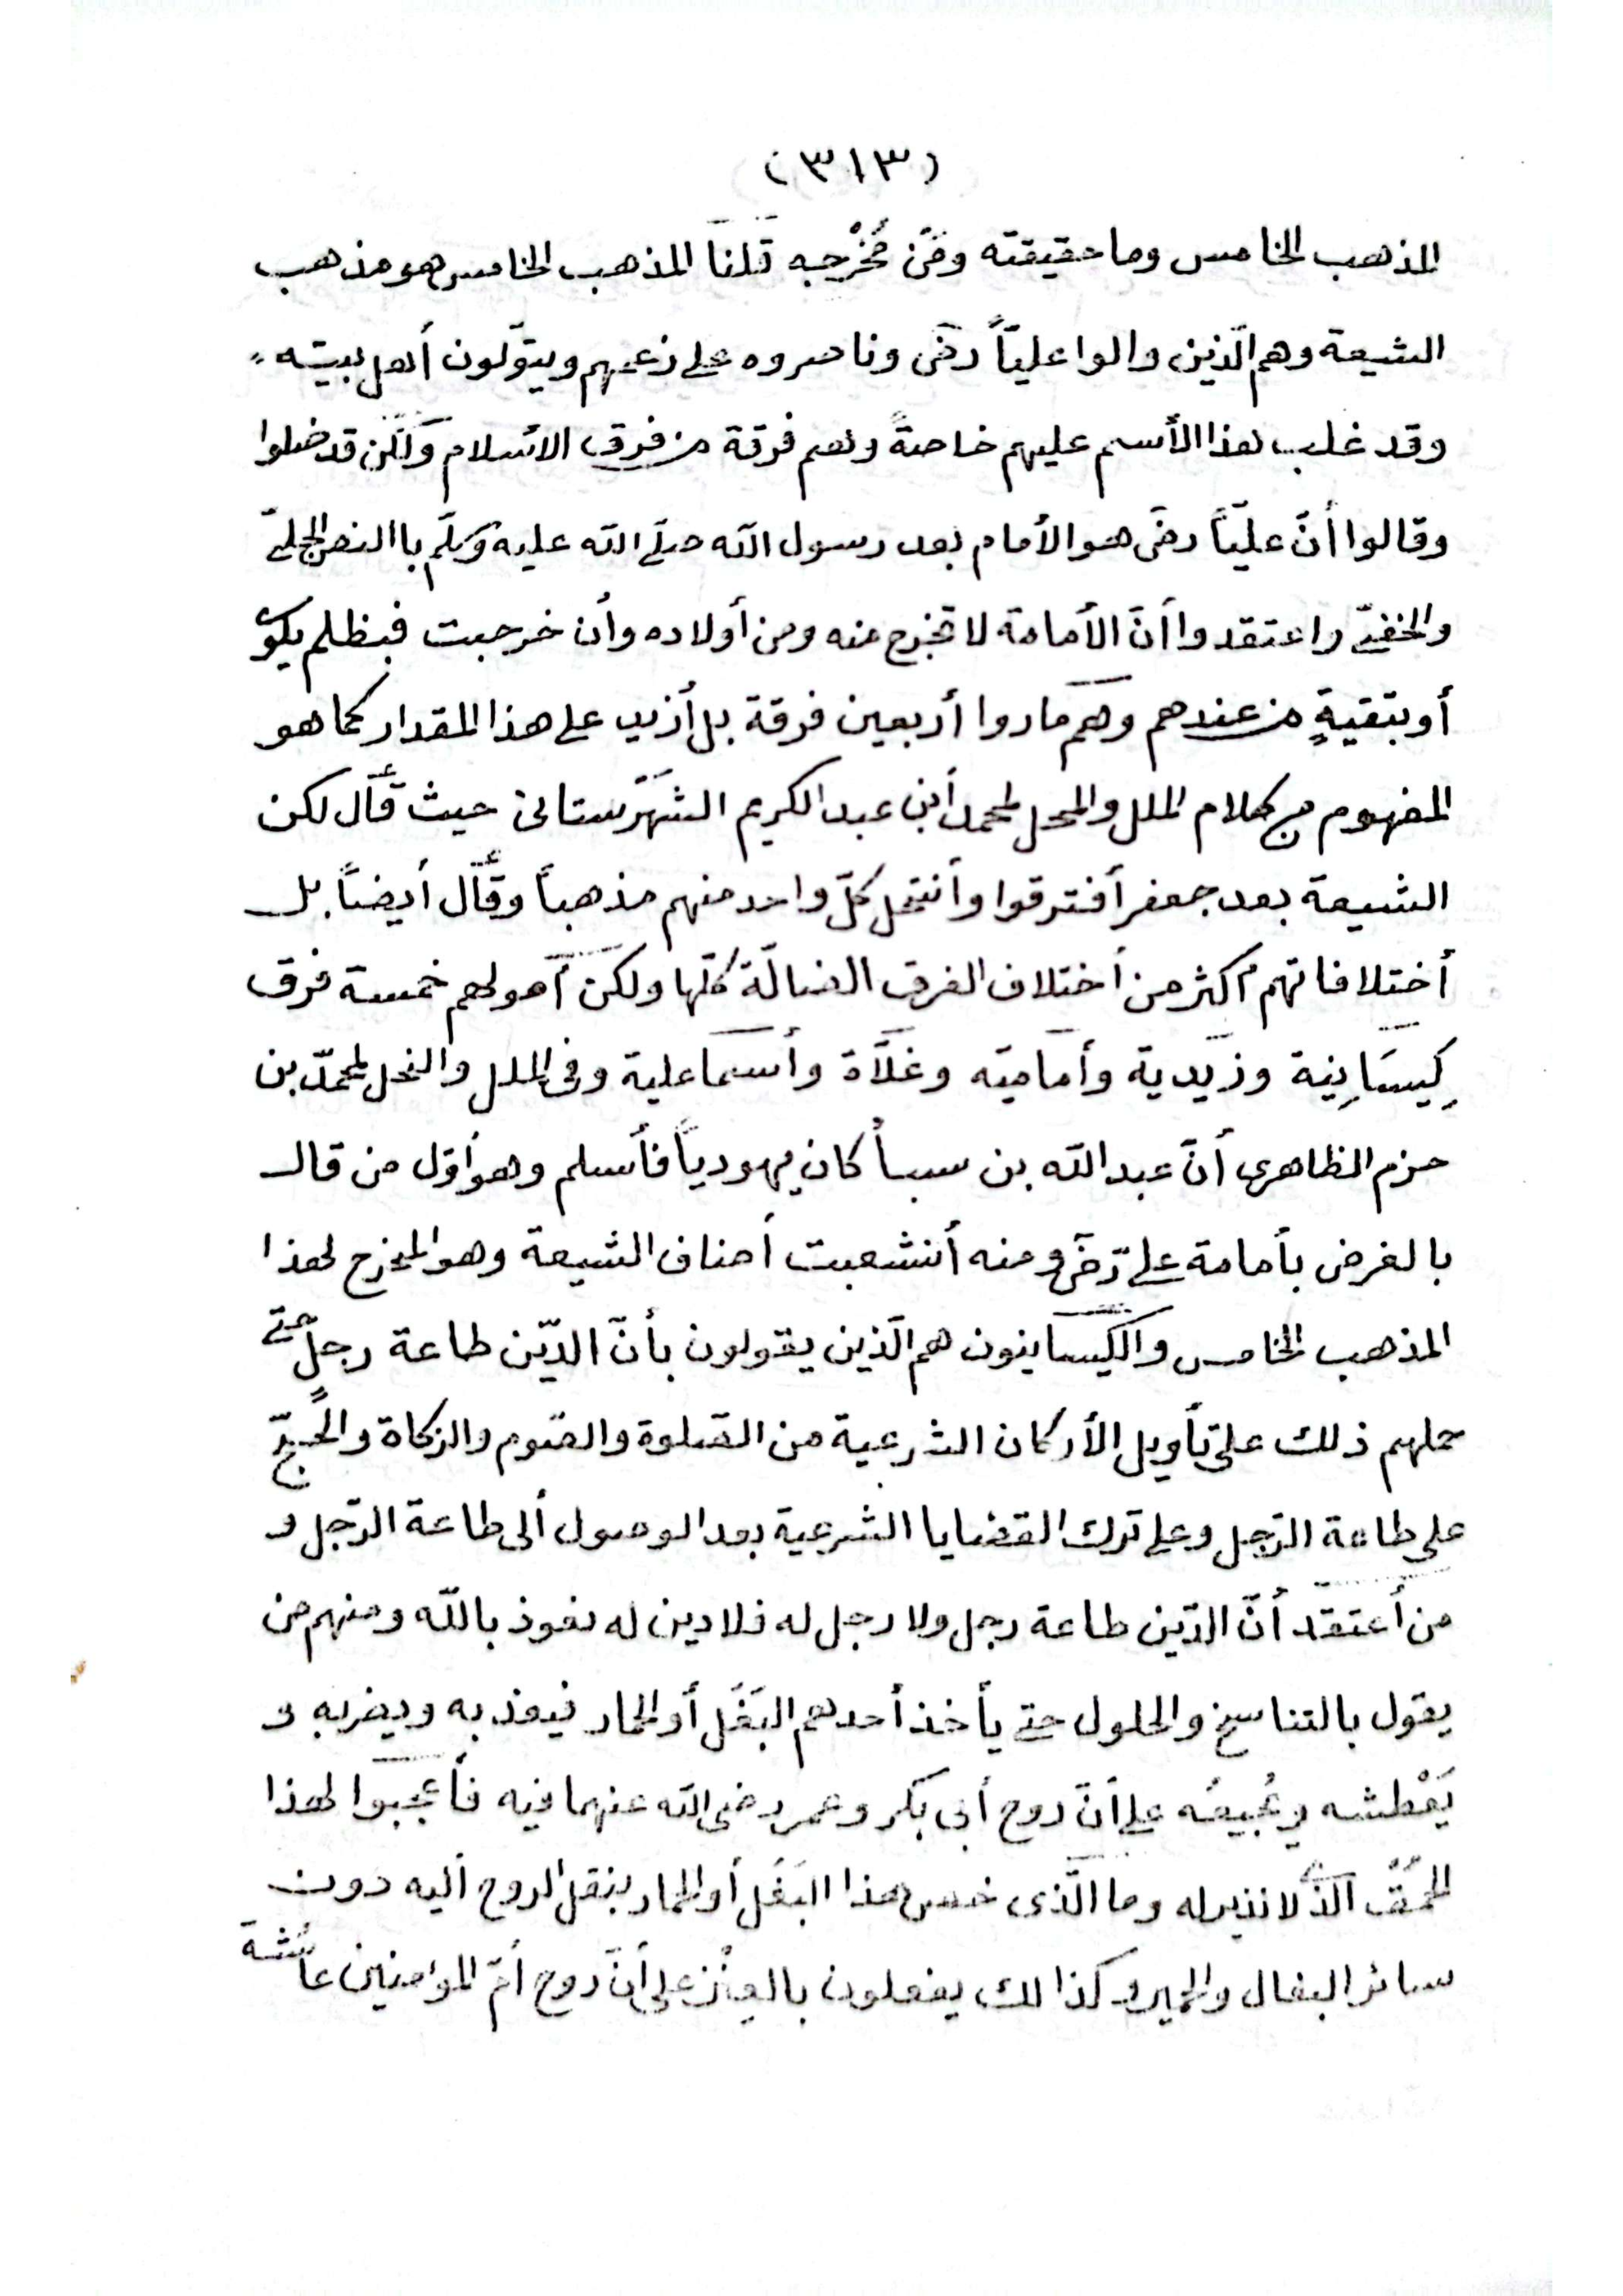 (٣١٣)
المذهب الخامس وما حقيقته ومَن مُخْرِجه قلنا المذهب الخامس هو مذهب
الشيعة وهم الّذين والوا عليّاً رضى وناصروه على زعمهم ويتوّلون أهل بيته
وقد غلب هذا الأسم عليهم خاصةً وهم فرقة من فرق الاسلام ولكن قد ضلوا
وقالوا أنّ عليّاً رضى هو الأمام بعد رسول الله صلّى الله عليه وسلّم باالنص الجلىّ
والخفىّ واعتقدوا أنّ الأمامة لا تخرج منه ومن أولاده وأن خرجت فبظلم يكون
أو بتقيةٍ من عندهم وهم صاروا أربعين فرقة بل أزيد على هذا المقدار كما هو
المفهوم من كلام الملل والمحل لمحمد أبن عبد الكريم الشهرستانى حيث قال لكن
الشيعة بعد جعفر أفترقوا وأنتحل كلّ واحد منهم مذهباً وقال أيضاً بل
أختلافاتهم أكثر من أختلاف الفرق الضالّة كلّها ولكن أصولهم خمسة فرق
كِيسَانِية وزيدية وأمامية وغلاة وأسماعلية وفى الملل والنحل لمحمّد بن
حزم الظاهرى أنّ عبد الله بن سبأ كان يهودياً فأسلم وهو أوّل من قال
بالفرض بأمامة على رضى ومنه أنشعبت أصناف الشيعة وهو المخرج لهذا
المذهب الخامس والكيسانيون هم الّذين يقولون بأنّ الدّين طاعة رجل حتى
حملهم ذلك على تأويل الأركان الشرعية من الصّلوة والصّوم والزكاة والحجّ
على طاعة الرّجل وعلى ترك القضايا الشرعية بعد الوصول ألى طاعة الرّجل و
من أعتقد أنّ الدّين طاعة رجل ولا رجل له فلا دين له نعوذ باللّه ومنهم من
يقول بالتناسخ والحلول حتى يأخذ أحدهم البَغَل أو الحمار فيعذبه ويضربه و
يَعْطشه ويُجيعُه على أنّ روح أبى بكر وعمر رضى الله عنهما فيه فأعجبوا لهذا
الحُمُق الّذى لا نذير له وما الّذى خصص هذا البَغَل أو الحمار بنقل الروح أليه دون
سائر البغال والحمير وكذالك يفعلون بالعنز على أنّ روح أمّ المؤمنين عائشة